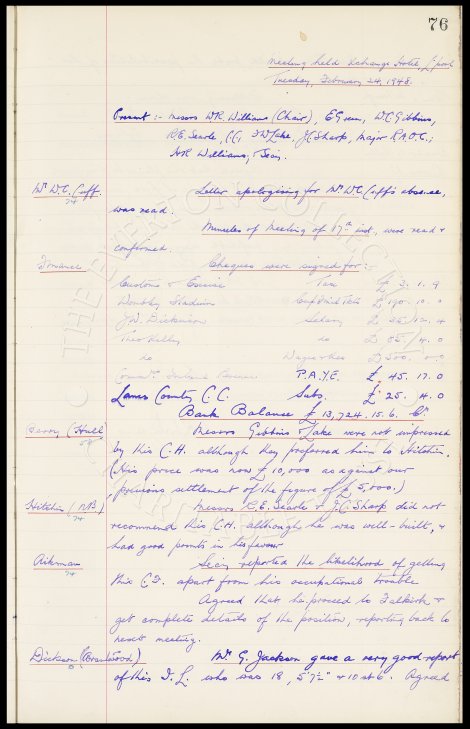 76
Meeting held Exchange Hotel, L'pool
Tuesday, February 24, 1948.
Present :- Messrs W.R. Williams (Chair), E Green, W.C. Gibbins,
R.E. Searle, C.C., F.W. Lake, J.C. Sharp, Major R.A.O.C.;
H.R. Williams, & Secy.
Mr W.C. Cuff.
74
Letter apologising for Mr. W.C. Cuff's absence,
was read.
Minutes of Meeting of 17th inst. were read &
confirmed.
Finance
Cheques were signed for:
Customs & Excise Tax £ 3. 1. 9
Stadium Cup Tkts £ 190. 10. 0
J.W. Dickinson Salary
Theo Kelly do
do Wages & 0. 0
Inland Revenue P.A.Y.E. £ 45. 17. 0
Lancs County C.C. Subs. £ 25. 4. 0
Bank Balance £ 13,724. 15. 6. Cr
(Hull
Messrs Gibbins & Lake were not impressed
by this C.H. although they preferred him to Hitchin.
(His price was now £10,000 as against our
previous settlement of the figure of £5,000.)
Hitchin (N.B.)
74
Messrs R.E. Searle & J.C. Sharp did not
recommend this C.H. although he was well-built, &
had good points in his favour.
Aikman
74
Secy reported the likelihood of getting
this C.F. apart from his occupational trouble.
Agreed that he proceed to Falkirk &
get complete details of the position, reporting back to
next meeting.
Dickson (Brantwood)
Mr G. Jackson gave a very good report
of this I.L. who was 18, 5' 7½" & 10 st 6. Agreed
© THE EVERTON COLLECTION